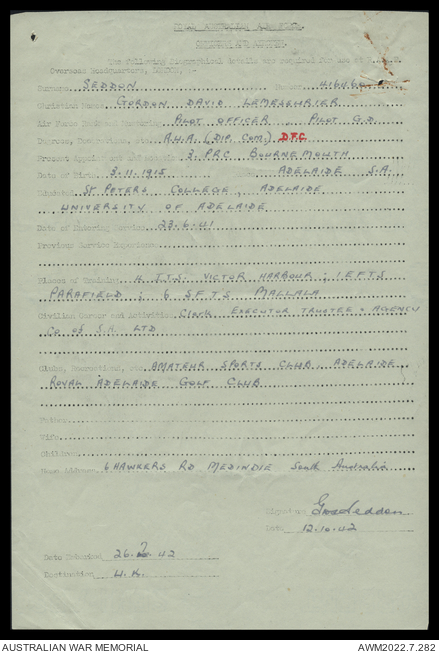 ROYAL AUSTRALIAN AIR FORCE.
The following biographical details are required for use at R.A.A.F.
Overseas Headquarters, London.
Surname SEDDON Number
Christian Names GORDON DAVID LEMESSURIER
Air Force Rank and Mustering PILOT OFFICER PILOT G.D.
Degrees, Decorations, etc. A.U.A. (DIP. COM.) D.F.C.
Present Appointment 3. PRC BOURNEMOUTH
Date of Birth 3.11.1915 ADELAIDE S.A.
Educated ST PETERS COLLEGE, ADELAIDE
UNIVERSITY OF ADELAIDE
Date of Entering Service 23.6.41
Previous Service Experience
Places of Training 4 I.T.S. VICTOR HARBOUR; 1 E.F.T.S
PARAFIELD; 6 S.F.T.S MALLALA
Civilian Career and Activities Clerk EXECUTOR TRUSTEE & AGENCY
Co of S.A. LTD
Clubs, Recreations, etc. AMATEUR SPORTS CLUB, ADELAIDE
ROYAL ADELAIDE GOLF CLUB
Father
Wife
Children
Home Address 6 HAWKERS RD MEDINDIE South Australia
Signature
Date 12.10.42
Date Embarked 26.?.42
Destination U.K.
AUSTRALIAN WAR MEMORIAL AWM2022.7.282